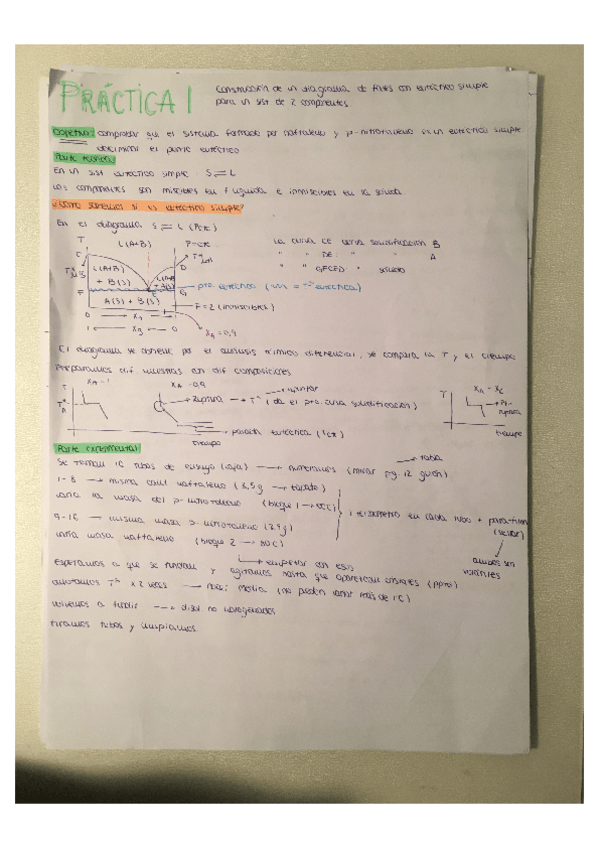 PRÁCTICA 1
Construcción de un diagrama de fases con eutéctico simple
para un sist de 2 componentes
Objetivo: comprobar que el sistema formado por naftaleno y p-nitrotolueno es un eutéctico simple
determinar el punto eutéctico
Parte teórica:
En un sist eutéctico simple: S ⇌ L
Los componentes son miscibles en f. líquida e inmiscibles en la sólida
¿Cómo sabemos si es eutéctico simple?
En el diagrama S ⇌ L (P cte)
T L(A+B) P=cte
La curva CE curva solidificación B
" " DE " " A
" " GFCED " sólido
L(A+B)
+ B(s)
pto. eutéctico
A(s) + B(s)
F=2 (inmiscibles)
0 — XA — 1
1 — XB — 0
XA=0,9
El diagrama se obtiene por el análisis térmico diferencial, se compara la T y el tiempo
Preparamos dif. muestras con dif composiciones
T XA=1 XA=0,9 T XA=XE
ruptura → Tª (da el pto. curva solidificación)
parada eutéctica
tiempo tiempo
Parte experimental
Se toman 16 tubos de ensayo (caja) → numerarlos (mirar pg. 12 guión)
tabla
1-8 → misma cant naftaleno (2,5g → tarado)
varía la masa del p-nitrotolueno (bloque 1 →
9-16 → misma masa p-nitrotolueno (2,5g)
varía masa naftaleno (bloque 2 →
1 termómetro en cada tubo +
empezar con esos
Esperamos a que se fundan y agitamos hasta que aparezcan cristales (ppto)
anotamos Tª x2 veces → media (no pueden variar más de 1ºC)
volvemos a fundir → disol no homogéneas
tiramos tubos y limpiamos.